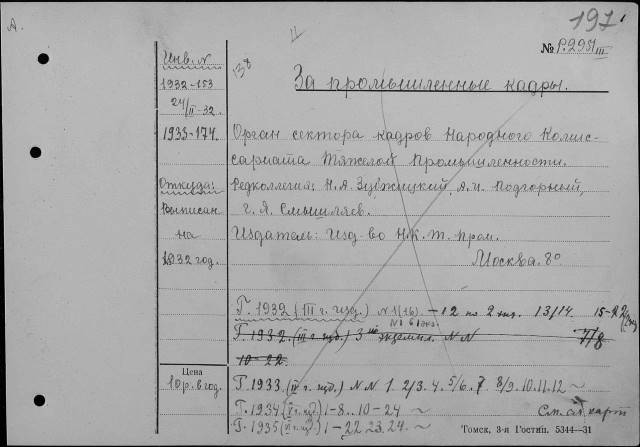 А.
197
№ Р.2951 III
11
138
Инв. N
1932-153
24/II-32.
1933-174.
За промышленные кадры.
Орган сектора кадров Народного Комис-
сариата Тяжелой Промышленности.
Откуда:
Выписан
на
1932 год.
Редколлегия: Н.А. А.И. Подгорный,
г. Я. Смышляев.
Издатель: Изд-во Н.К.Т. Пром.
Москва. 8º
Г. 1932 (III г. изд.) N 1(16) - 12 по 2 экз. 13/14. 15-22
N 6 1 экз.
Г. 1932. (III г. изд.) 3 экземпл. N N 7/8
10-22.
Цена
10 р. в год.
Г. 1933. (IV г. изд.) N N 1. 2/3. 4. 5/6. 7 8/9. 10. 11. 12 ~
Г. 1934 (V г. изд.) 1-8.. 10-24 ~
См. сл. карт
Г. 1935 (VI г. изд.) 1-22 23. 24. ~
Томск, 3-я Гостип. 5344—31